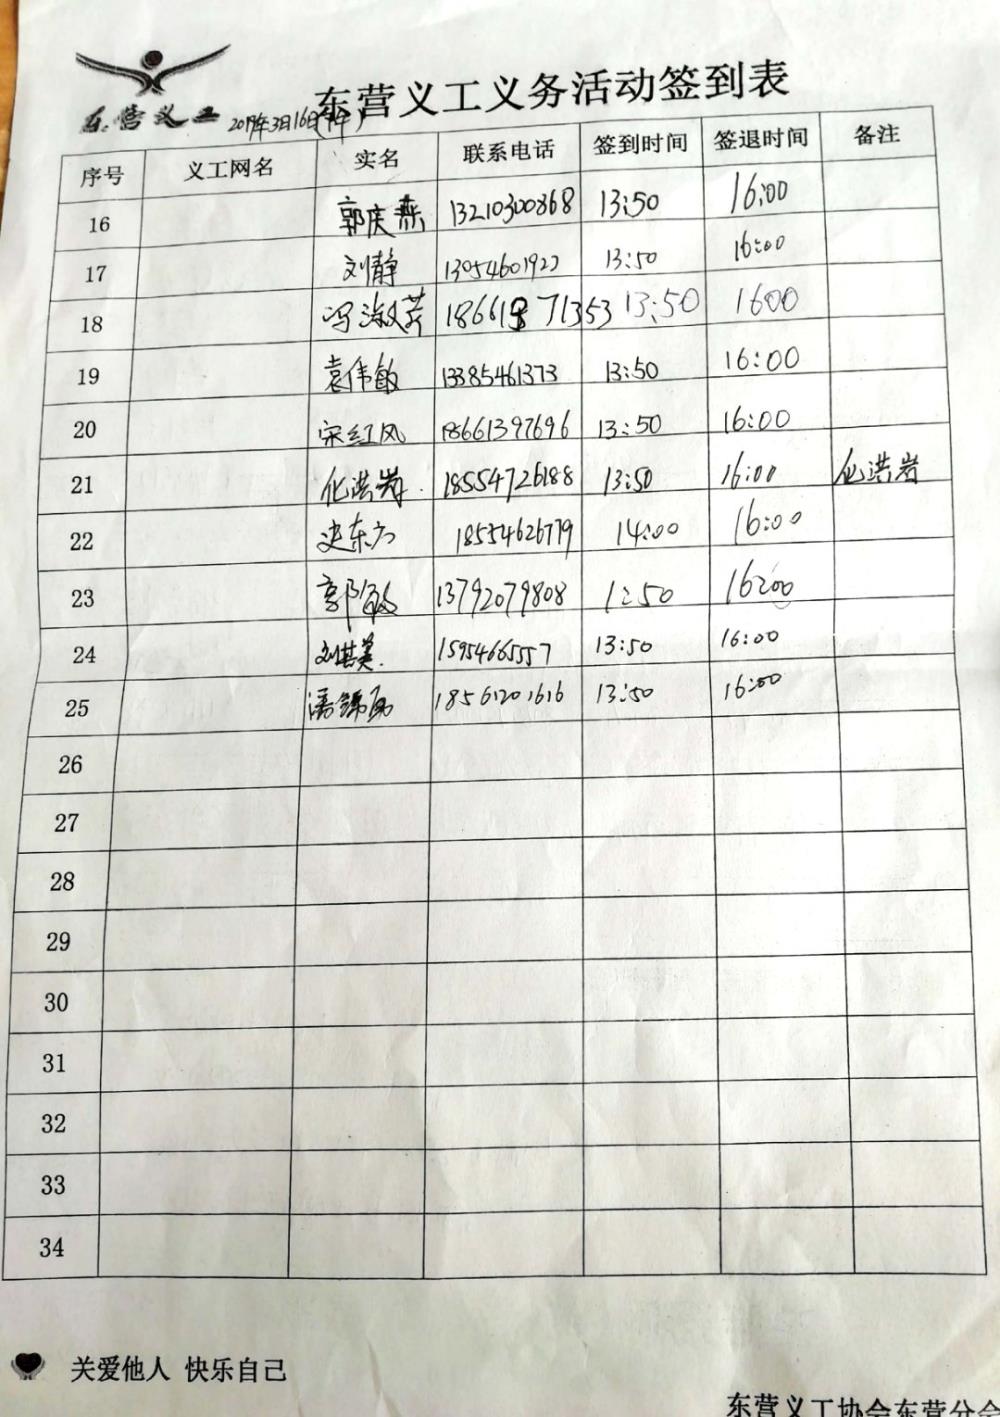 东营义工义务活动签到表
东营义工 2019年3月16日
序号 义工网名 实名 联系电话 签到时间 签退时间 备注
16 郭庆燕 13210300868 13:50 16:00
17 刘静 13054601922 13:50 16:00
18 冯淑芳 18661871353 13:50 1600
19 袁伟敏 13385461373 13:50 16:00
20 宋红风 18661397696 13:50 16:00
21 化洪岩. 18554726188 13:50 16:00 化洪岩
22 18554626779 14:00 16:00
23 郭敏 13792079808 1:50 16:00
24 刘其美. 15954665557 13:50 16:00
25 18561201616 13:50 16:00
26
27
28
29
30
31
32
33
34
关爱他人 快乐自己
东营义工协会东营分会